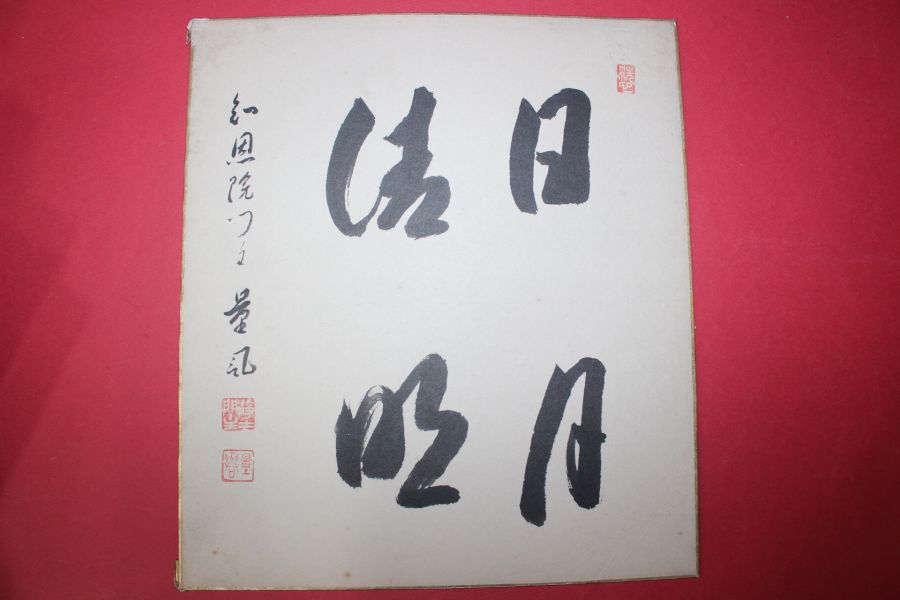 日月
清明
知恩院門主 量風